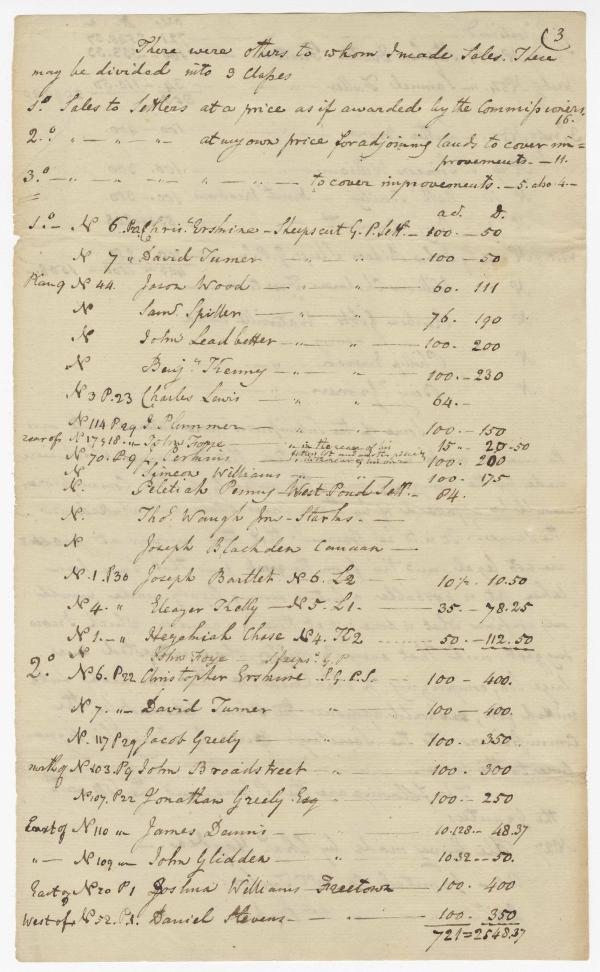 (3
There were others to whom I made Sales. These
may be divided into 3 Classes
1.o Sales to Settlers at a price as if awarded by the Commissioners,
16.
2.o " — " — " — " at my own price for adjoining lands to cover im=
provements. — 11.
3.o — " — " — " — " — " — to cover improvements. — 5. also 4. —
ac. D.
1.o — No 6. P.22 Chris. Erskine — Sheepscut G. P. Sett. — 100. — 50
No 7 " David Turner — " — " — 100 — 50
No 44. Jason Wood — " — " — 60. 111
No Saml. Spiller — " — " — 76. 190
No John Leadbetter — " — " — 100. 200
No Benjn. Kenney — " — " — 100. — 230
No 3 P. 23 Charles Lewis — " — " — 64. —
No 114 P 29 J. Plummer — " — " — 100. — 150
rear of No 17 & 18. " John Foye — " in the rear of his 15 " 20.50
No 70. P. 9 J. Perkins 100. 200
No Simeon Williams — " — " 100. 175
No. Pelitiah Penny — West Pond Sett. — 84.
No. Tho.s Waugh Jnr — Starks. —
No Joseph Blachden Canaan —
No. 1. P 30 Joseph Bartlet No 6. L2 — 10½. 10.50
No 4. " Eleazer Kelly — No 5. L1. — 35. — 78.25
No 1. — " Hezekiah Chase No 4. K2 — 50. — 112.50
No John Foye Sheeps.t G. P
2.o No 6. P22 Christopher Erskine S. G. P. S. — 100 — 400.
No 7. " David Turner — " — 100 — 400.
No. 117 P29 Jacob Greely — " — 100. 350
north of No 103. P9 John Broadstreet — " — 100. 300
No 107. P22 Jonathan Greely Esq — " — 100. — 250
East of No 110 " James Dannis — " — 10.128. — 48.37
" — No 109 " John Glidden — " — 10.32 — 50.
East of No 20 P1 Joshua Williams — Freetown — 100. 400
West of No 52. P.1. Daniel Stevens — " — 100. 350
721 = 2548.37